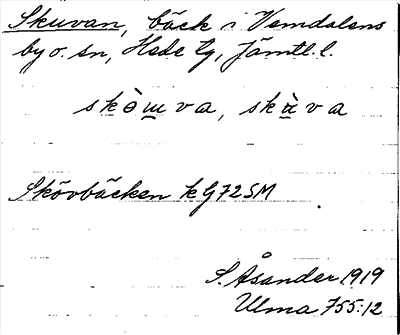 Skuvan, bäck i Vemdalens
by o. sn, Hede tg, Jämtl. l.
skòɯva, skùva
Skövbäcken kG72SM
S. Åsander 1919
Ulma 755:12